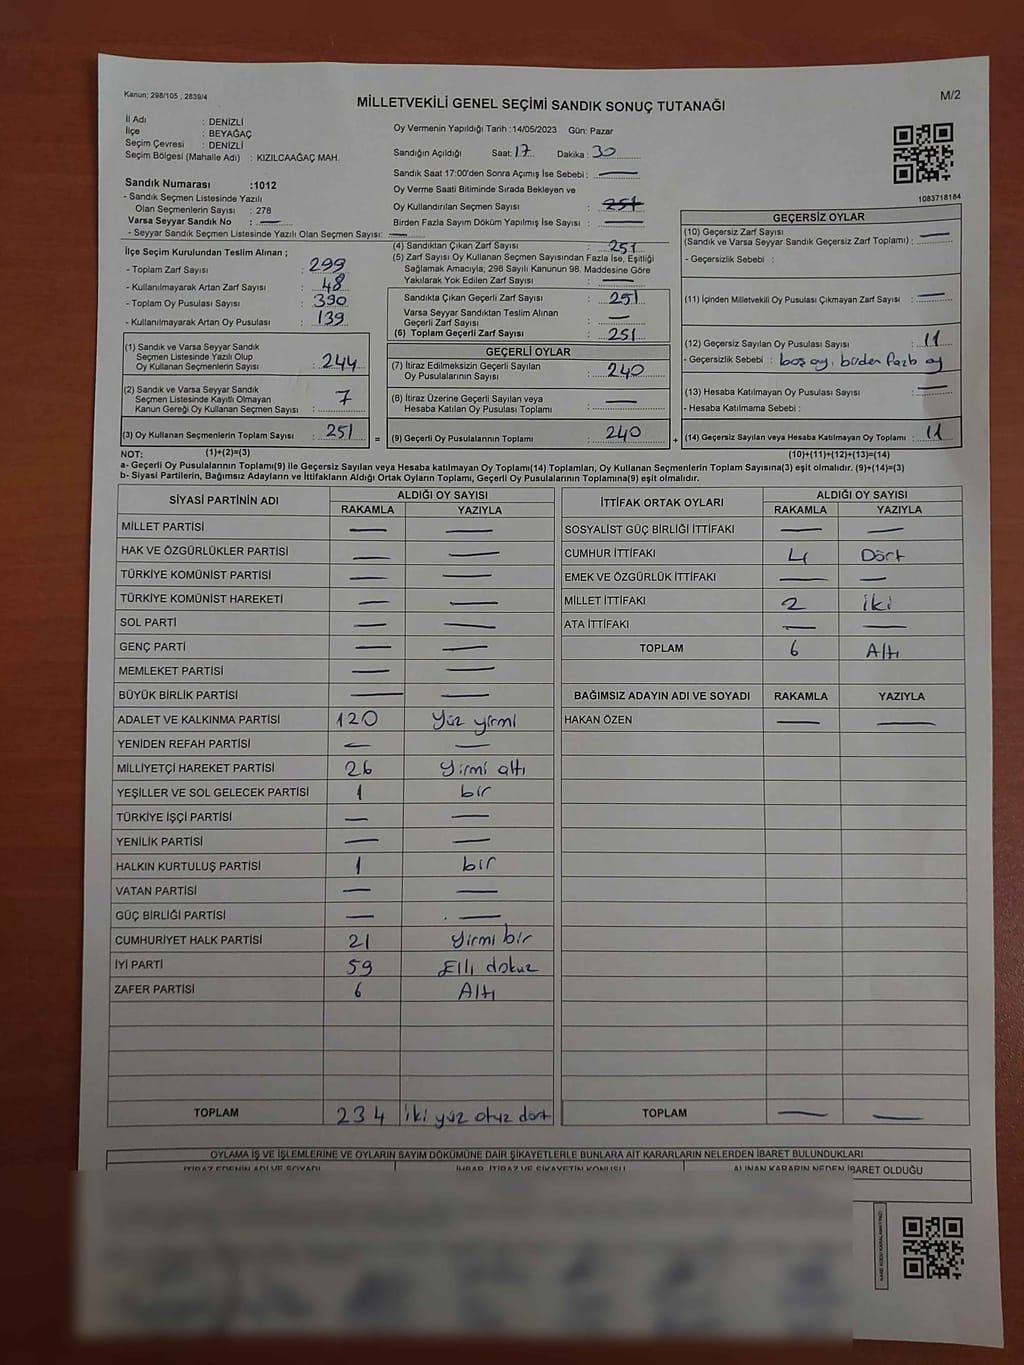 Kanun; 298/105 , 2839/4
MİLLETVEKİLİ GENEL SEÇİMİ SANDIK SONUÇ TUTANAĞI
M/2
İl Adı : DENİZLİ
İlçe : BEYAĞAÇ
Seçim Çevresi : DENİZLİ
Seçim Bölgesi (Mahalle Adı) : KIZILCAAĞAÇ MAH.
Sandık Numarası :1012
- Sandık Seçmen Listesinde Yazılı
Olan Seçmenlerin Sayısı : 278
Varsa Seyyar Sandık No : —
- Seyyar Sandık Seçmen Listesinde Yazılı Olan Seçmen Sayısı: —
Oy Vermenin Yapıldığı Tarih :14/05/2023 Gün: Pazar
Sandığın Açıldığı Saat: 17 Dakika : 30
Sandık Saat 17:00'den Sonra Açımış İse Sebebi : —
Oy Verme Saati Bitiminde Sırada Bekleyen ve
Oy Kullandırılan Seçmen Sayısı : 251
Birden Fazla Sayım Döküm Yapılmış İse Sayısı : —
1083718184
İlçe Seçim Kurulundan Teslim Alınan ;
- Toplam Zarf Sayısı : 299
- Kullanılmayarak Artan Zarf Sayısı : 48
- Toplam Oy Pusulası Sayısı : 390
- Kullanılmayarak Artan Oy Pusulası : 139
(1) Sandık ve Varsa Seyyar Sandık
Seçmen Listesinde Yazılı Olup
Oy Kullanan Seçmenlerin Sayısı : 244
(2) Sandık ve Varsa Seyyar Sandık
Seçmen Listesinde Kayıtlı Olmayan
Kanun Gereği Oy Kullanan Seçmen Sayısı : 7
(3) Oy Kullanan Seçmenlerin Toplam Sayısı : 251
(1)+(2)=(3)
(4) Sandıktan Çıkan Zarf Sayısı : 251
(5) Zarf Sayısı Oy Kullanan Seçmen Sayısından Fazla İse, Eşitliği
Sağlamak Amacıyla; 298 Sayılı Kanunun 98. Maddesine Göre
Yakılarak Yok Edilen Zarf Sayısı : —
Sandıkta Çıkan Geçerli Zarf Sayısı : 251
Varsa Seyyar Sandıktan Teslim Alınan
Geçerli Zarf Sayısı : —
(6) Toplam Geçerli Zarf Sayısı : 251
GEÇERLİ OYLAR
(7) İtiraz Edilmeksizin Geçerli Sayılan
Oy Pusulalarının Sayısı : 240
(8) İtiraz Üzerine Geçerli Sayılan veya
Hesaba Katılan Oy Pusulası Toplamı : —
= (9) Geçerli Oy Pusulalarının Toplamı : 240
GEÇERSİZ OYLAR
(10) Geçersiz Zarf Sayısı
(Sandık ve Varsa Seyyar Sandık Geçersiz Zarf Toplamı) : —
- Geçersizlik Sebebi :
(11) İçinden Milletvekili Oy Pusulası Çıkmayan Zarf Sayısı : —
(12) Geçersiz Sayılan Oy Pusulası Sayısı : 11
- Geçersizlik Sebebi : boş oy, birden fazla oy
(13) Hesaba Katılmayan Oy Pusulası Sayısı : —
- Hesaba Katılmama Sebebi :
+ (14) Geçersiz Sayılan veya Hesaba Katılmayan Oy Toplamı : 11
(10)+(11)+(12)+(13)=(14)
NOT:
a- Geçerli Oy Pusulalarının Toplamı(9) ile Geçersiz Sayılan veya Hesaba katılmayan Oy Toplamı(14) Toplamları, Oy Kullanan Seçmenlerin Toplam Sayısına(3) eşit olmalıdır. (9)+(14)=(3)
b- Siyasi Partilerin, Bağımsız Adayların ve İttifakların Aldığı Ortak Oyların Toplamı, Geçerli Oy Pusulalarının Toplamına(9) eşit olmalıdır.
SİYASİ PARTİNİN ADI ALDIĞI OY SAYISI
RAKAMLA YAZIYLA
MİLLET PARTİSİ — —
HAK VE ÖZGÜRLÜKLER PARTİSİ — —
TÜRKİYE KOMÜNİST PARTİSİ — —
TÜRKİYE KOMÜNİST HAREKETİ — —
SOL PARTİ — —
GENÇ PARTİ — —
MEMLEKET PARTİSİ — —
BÜYÜK BİRLİK PARTİSİ — —
ADALET VE KALKINMA PARTİSİ 120 Yüz yirmi
YENİDEN REFAH PARTİSİ — —
MİLLİYETÇİ HAREKET PARTİSİ 26 Yirmi altı
YEŞİLLER VE SOL GELECEK PARTİSİ 1 bir
TÜRKİYE İŞÇİ PARTİSİ — —
YENİLİK PARTİSİ — —
HALKIN KURTULUŞ PARTİSİ 1 bir
VATAN PARTİSİ — —
GÜÇ BİRLİĞİ PARTİSİ — —
CUMHURİYET HALK PARTİSİ 21 Yirmi bir
İYİ PARTİ 59 Elli dokuz
ZAFER PARTİSİ 6 Altı
TOPLAM 234 iki yüz otuz dört
İTTİFAK ORTAK OYLARI ALDIĞI OY SAYISI
RAKAMLA YAZIYLA
SOSYALİST GÜÇ BİRLİĞİ İTTİFAKI — —
CUMHUR İTTİFAKI 4 Dört
EMEK VE ÖZGÜRLÜK İTTİFAKI — —
MİLLET İTTİFAKI 2 iki
ATA İTTİFAKI — —
TOPLAM 6 Altı
BAĞIMSIZ ADAYIN ADI VE SOYADI RAKAMLA YAZIYLA
HAKAN ÖZEN — —
TOPLAM — —
OYLAMA İŞ VE İŞLEMLERİNE VE OYLARIN SAYIM DÖKÜMÜNE DAİR ŞİKAYETLERLE BUNLARA AİT KARARLARIN NELERDEN İBARET BULUNDUKLARI
İTİRAZ EDENİN ADI VE SOYADI İHBAR, İTİRAZ VE ŞİKAYETİN KONUSU ALINAN KARARIN NEDEN İBARET OLDUĞU